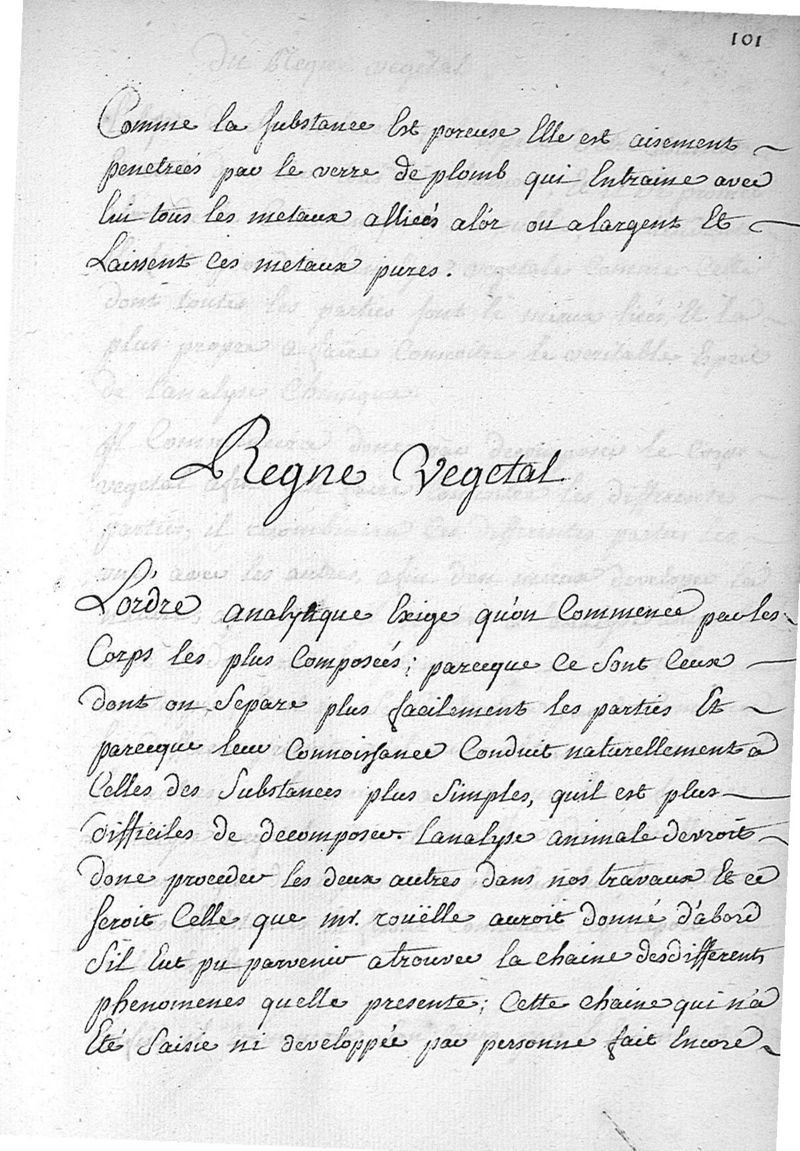 101
Comme la substance Est poreuse Elle est aisement
penetrées par le verre de plomb qui Entraine avec
lui tous les metaux alliées alór ou alargent Et
Laissent ces metaux pures.
Regne Vegetal
L'ordre analytique Exige qu'on Commence par les
Corps les plus Composeés; parceque ce sont Ceux
dont on separe plus facilement les parties Et
parceque leur Connoissance Conduit naturellement a
Celles des Substances plus simples, quil est plus
difficiles de decomposer. lanalyse animale devroit
donc proceder les deux autres dans nos travaux Et ce
seroit Celle que mr. roüelle auroit donné d'abord
S'il Eut pu parvenir a trouver la chaine des differents
phenomenes quelle presente; Cette chaine qui n'a
Eté Saisie ni developpée par personne fait Encore